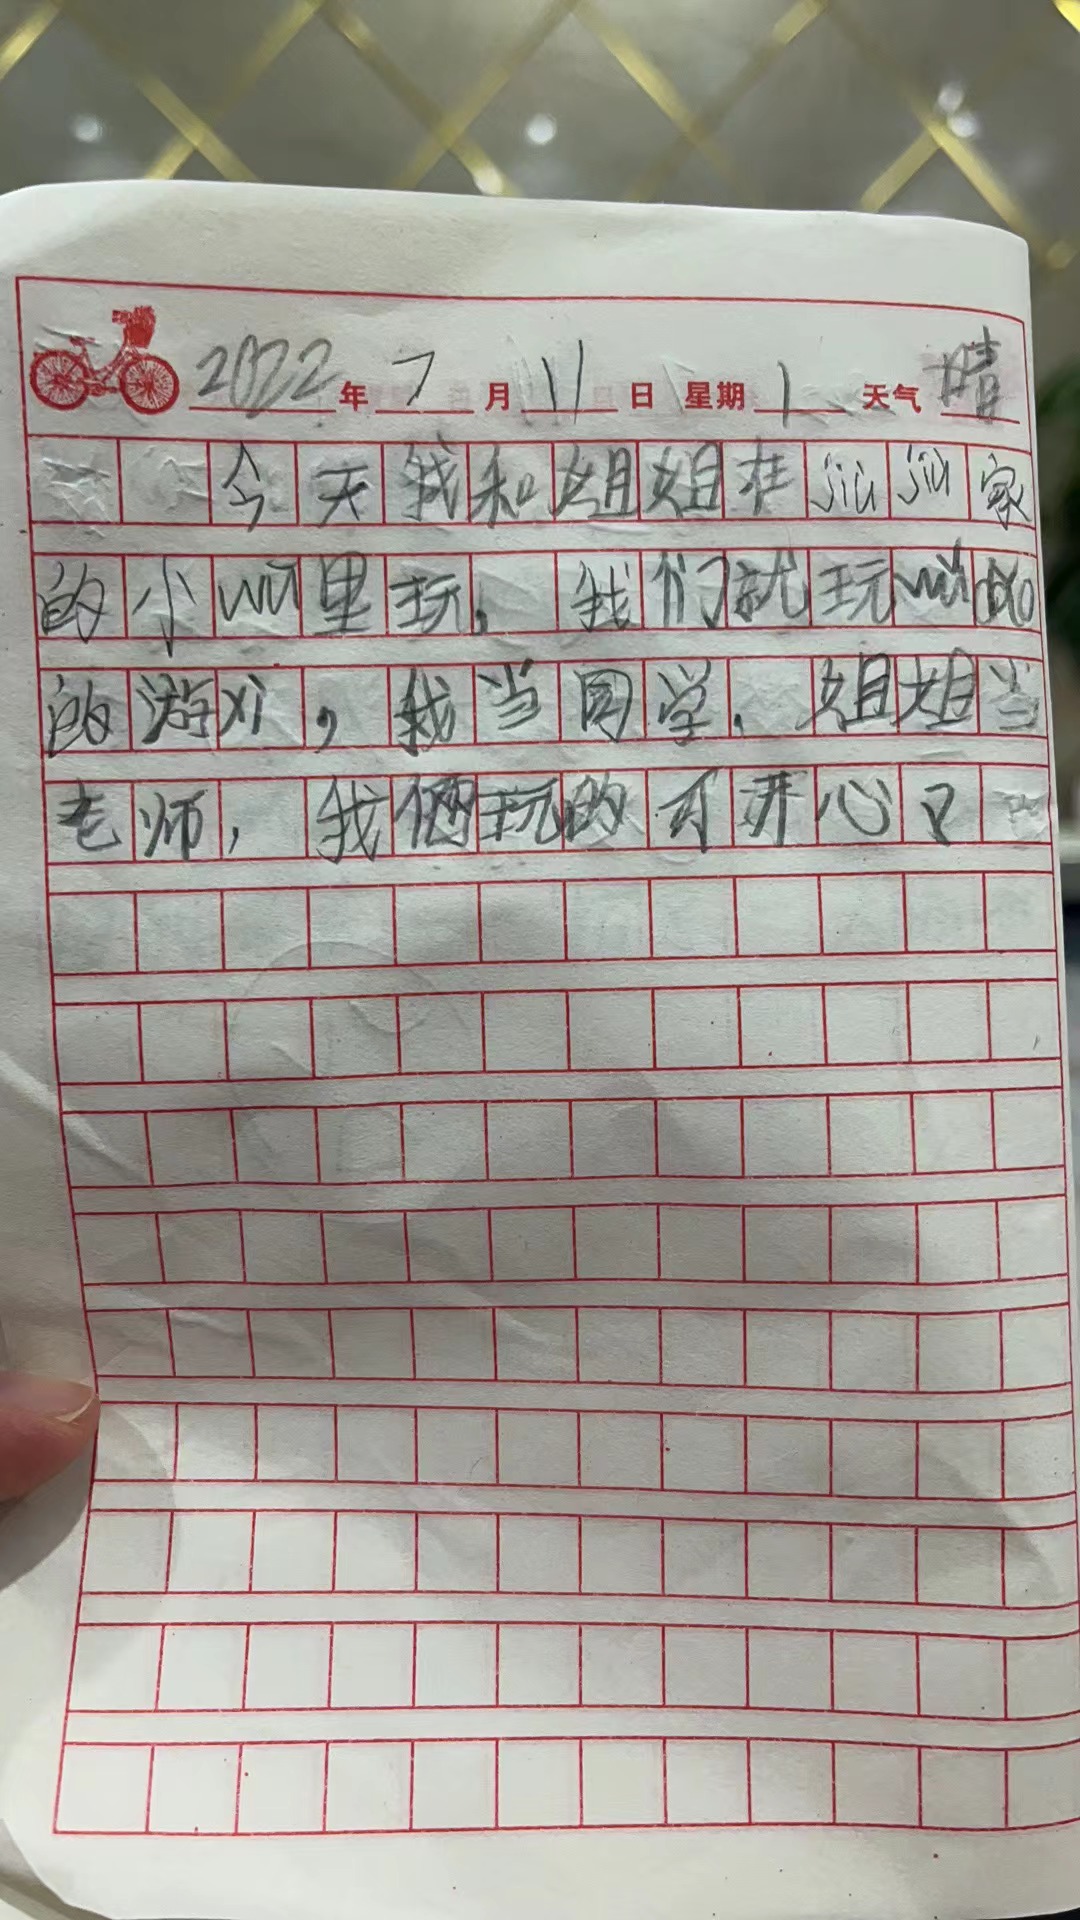 2022年7月11日 星期1 天气 晴
今天我和姐姐在jiù jiù家
的小wū里玩,我们就玩
的游戏,我当同学,姐姐当
老师,我俩玩的可开心了